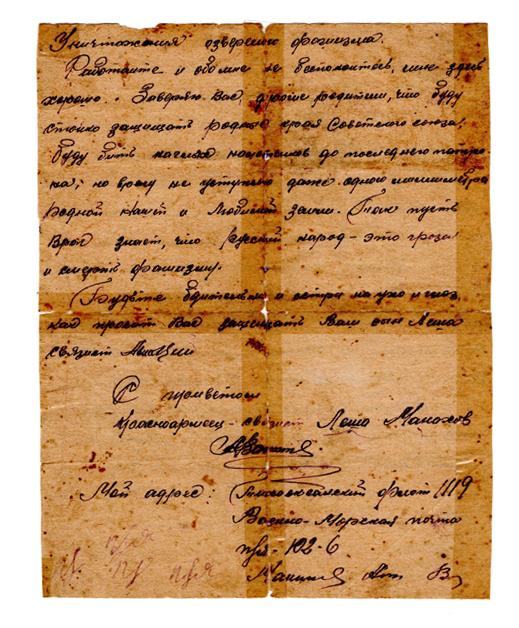 Уничтожения озверелого фашизма.
Работайте и обо мне не беспокойтесь, мне здесь
хорошо. Заверяю Вас дорогие родители, что буду
стойко защищать родные края Советского союза.
Буду бить наглых до последнего патро-
на; но врагу не уступлю даже одного миллиметра
родной нашей и любимой земли. Так пусть
враг знает, что русский народ - это гроза
и смерть фашизму.
Будьте бдительны и остры на ухо и глаз
как просит Вас защищать Ваш сын Леша
связист
С приветом
Красноармеец - связист Леша Манохов
Мой адрес: Тихоокеанский флот 1119
Военно-Морская почта
п/я - 102-6
В
п/я
п/я